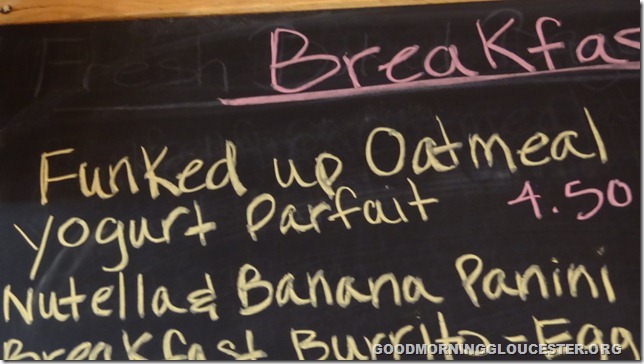 Breakfas
Funked up Oatmeal
Yogurt Parfait 4.50
Nutella & Banana Panini
Breakfast Burrito-Egg
GOODMORNINGGLOUCESTER.ORG